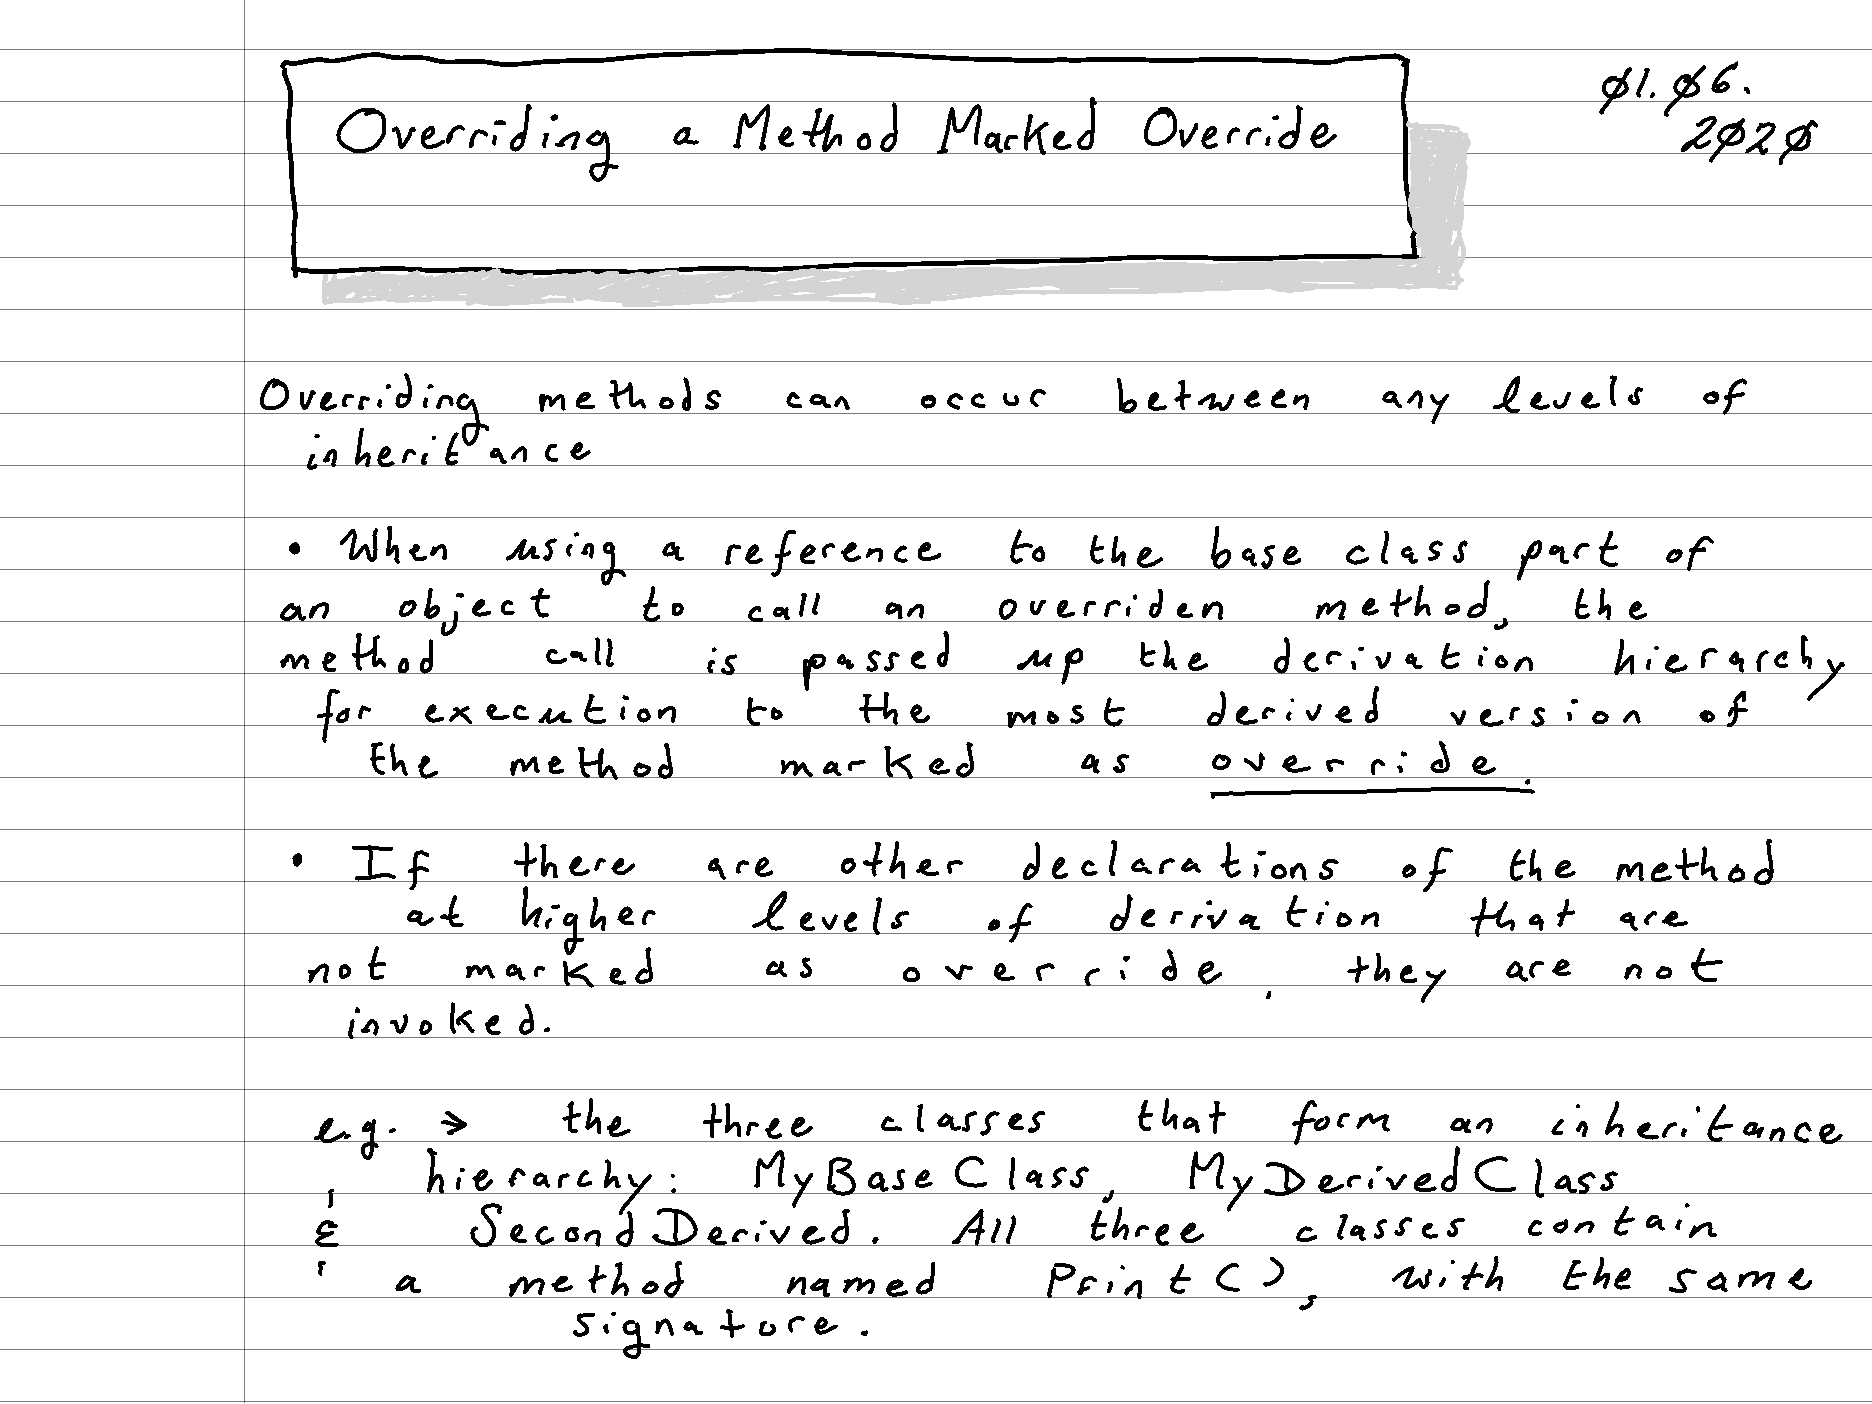 Overriding a Method Marked Override
Ø1.Ø6.
2Ø2Ø
Overriding methods can occur between any levels of
inheritance
• When using a reference to the base class part of
an object to call an overriden method, the
method call is passed up the derivation hierarchy
for execution to the most derived version of
the method marked as override.
• If there are other declarations of the method
at higher levels of derivation that are
not marked as override, they are not
invoked.
e.g. → the three classes that form an inheritance
hierarchy: MyBaseClass, MyDerivedClass
& SecondDerived. All three classes contain
a method named Print(), with the same
signature.